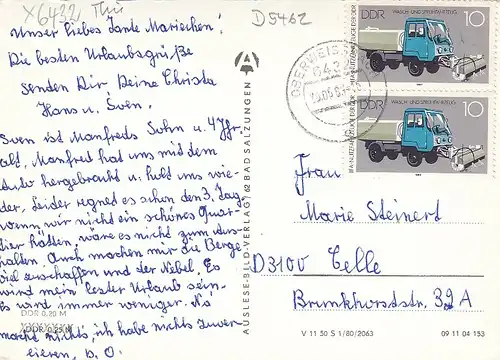 X6432 Thü
D5462
Unser liebes Tante Mariechen!
Die besten Urlaubsgrüße
senden Dir, Deine Christa
Hans u. Sven.
Sven ist Manfreds Sohn u. 4 Jhr.
alt. Manfred hat uns mit dem
Auto hergebracht u. holt uns wie-
der. Leider regnet es schon den 3. Tag,
wenn wir nicht ein schönes Quar-
tier hätten, wäre es nicht zum Aus-
halten. Auch machen mir die Berge
viel zu schaffen und der Nebel. Es
wird mein letzter Urlaub sein.
Es wird immer weniger. Na
macht nichts, ich habe nichts zu ver-
lieren. D. O.
DDR 0,20 M
DDR 0,25 M
AUSLESE-BILD-VERLAG 62 BAD SALZUNGEN
DDR WASCH- UND SPRÜHFAHRZEUG 10
IFA-NUTZFAHRZEUGE DER DDR
DDR WASCH- UND SPRÜHFAHRZEUG 10
IFA-NUTZFAHRZEUGE DER DDR
OBERWEISSBACH
Frau
Marie Steinert
D3100 Celle
Brunkhorststr. 32A
V 11 50 S 1/80/2063
09 11 04 153